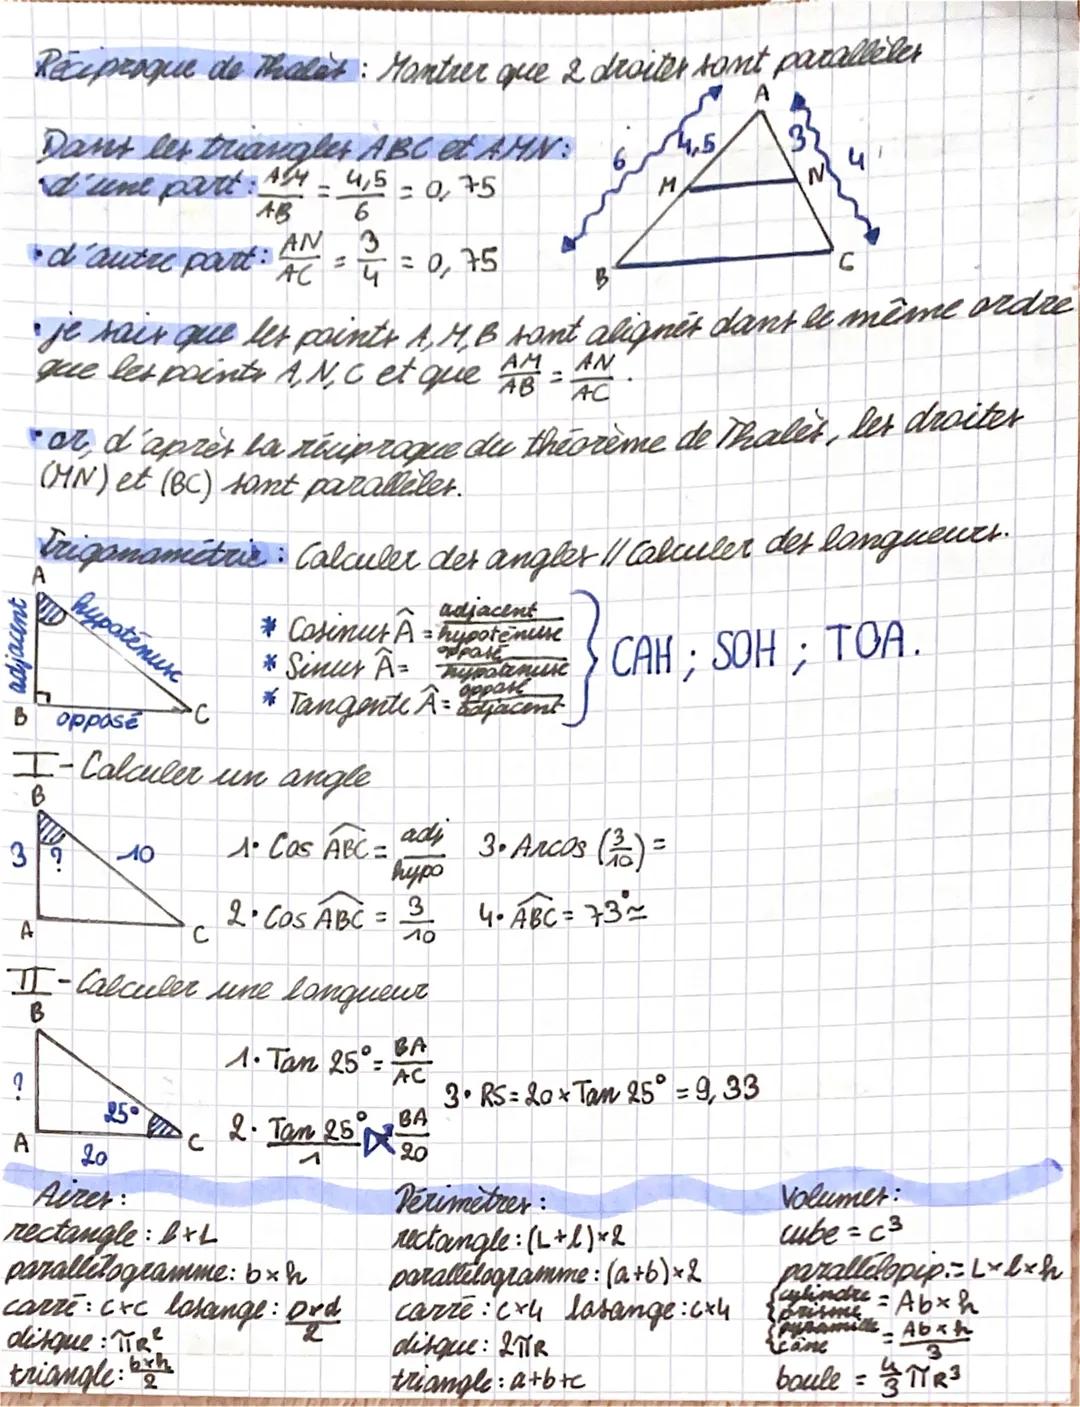 Réciproque de Thalès : Montrer que 2 droites sont parallèles
Dans les triangles ABC et AMN:
• d'une part: AM/AB = 4,5/6 = 0,75
• d'autre part: AN/AC = 3/4 = 0,75
A
6
4,5
3
4
M
N
B
C
• je sais que les points A, M, B sont alignés dans le même ordre
que les points A, N, C et que AM/AB = AN/AC.
• or, d'après la réciproque du théorème de Thalès, les droites
(MN) et (BC) sont parallèles.
Trigonométrie : Calculer des angles // Calculer des longueurs.
A
adjacent
hypoténuse
B
opposé
C
* Cosinus Â = adjacent/hypoténuse
* Sinus Â = opposé/hypoténuse
* Tangente Â = opposé/adjacent
CAH ; SOH ; TOA.
I - Calculer un angle
B
3
?
10
A
C
1• Cos ABC = adj/hypo
2• Cos ABC = 3/10
3• Arcos (3/10) =
4• ABC = 73°≃
II - Calculer une longueur
B
?
25°
A
20
C
1• Tan 25° = BA/AC
2• Tan 25°/1 BA/20
3• RS = 20 x Tan 25° = 9,33
Aires :
rectangle : l x L
parallélogramme : b x h
carré : c x c losange : D x d/2
disque : πR²
triangle : b x h/2
Périmètres :
rectangle : (L + l) x 2
parallélogramme : (a + b) x 2
carré : c x 4 losange : c x 4
disque : 2πR
triangle : a + b + c
Volumes :
cube = c³
parallélopip. = L x l x h
{cylindre prisme = Ab x h
{pyramide cône = Ab x h/3
boule = 4/3 πR³